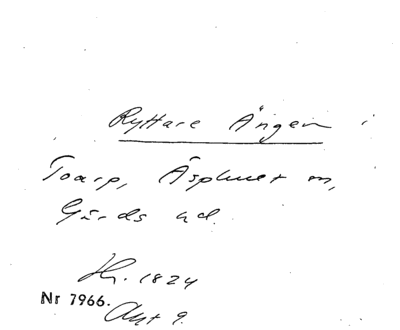 Ryttare Ängen i
Toarp, Äsphult sn,
Gärds hd.
Hr. 1824
Nr 7966.
Akt 9.